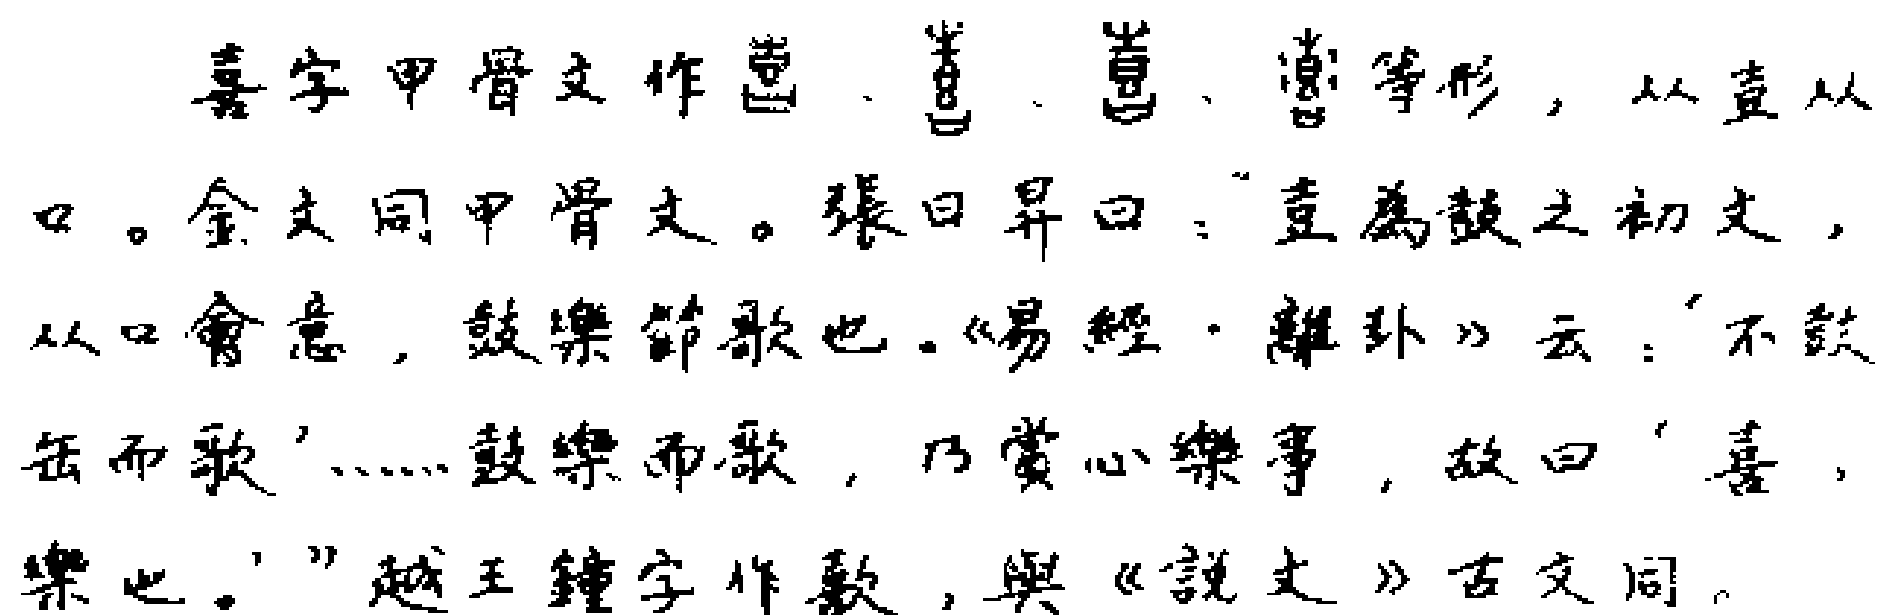 喜字甲骨文作、、、等形，从壴从
口。金文同甲骨文。張日昇曰：“壴為鼓之初文，
从口會意，鼓樂節歌也。《易經·離卦》云：‘不鼓
缶而歌’……鼓樂而歌，乃賞心樂事，故曰‘喜，
樂也。’”越王鐘字作歖，與《説文》古文同。